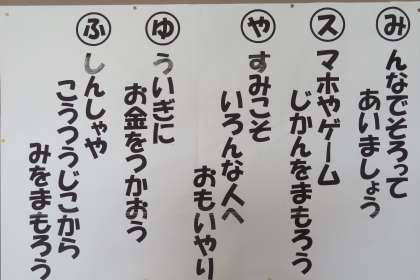 み
んなでそろって
あいましょう
ス
マホやゲーム
じかんをまもろう
や
すみこそ
いろんな人へ
おもいやり
ゆ
ういぎに
お金をつかおう
ふ
しんしゃや
こうつうじこから
みをまもろう